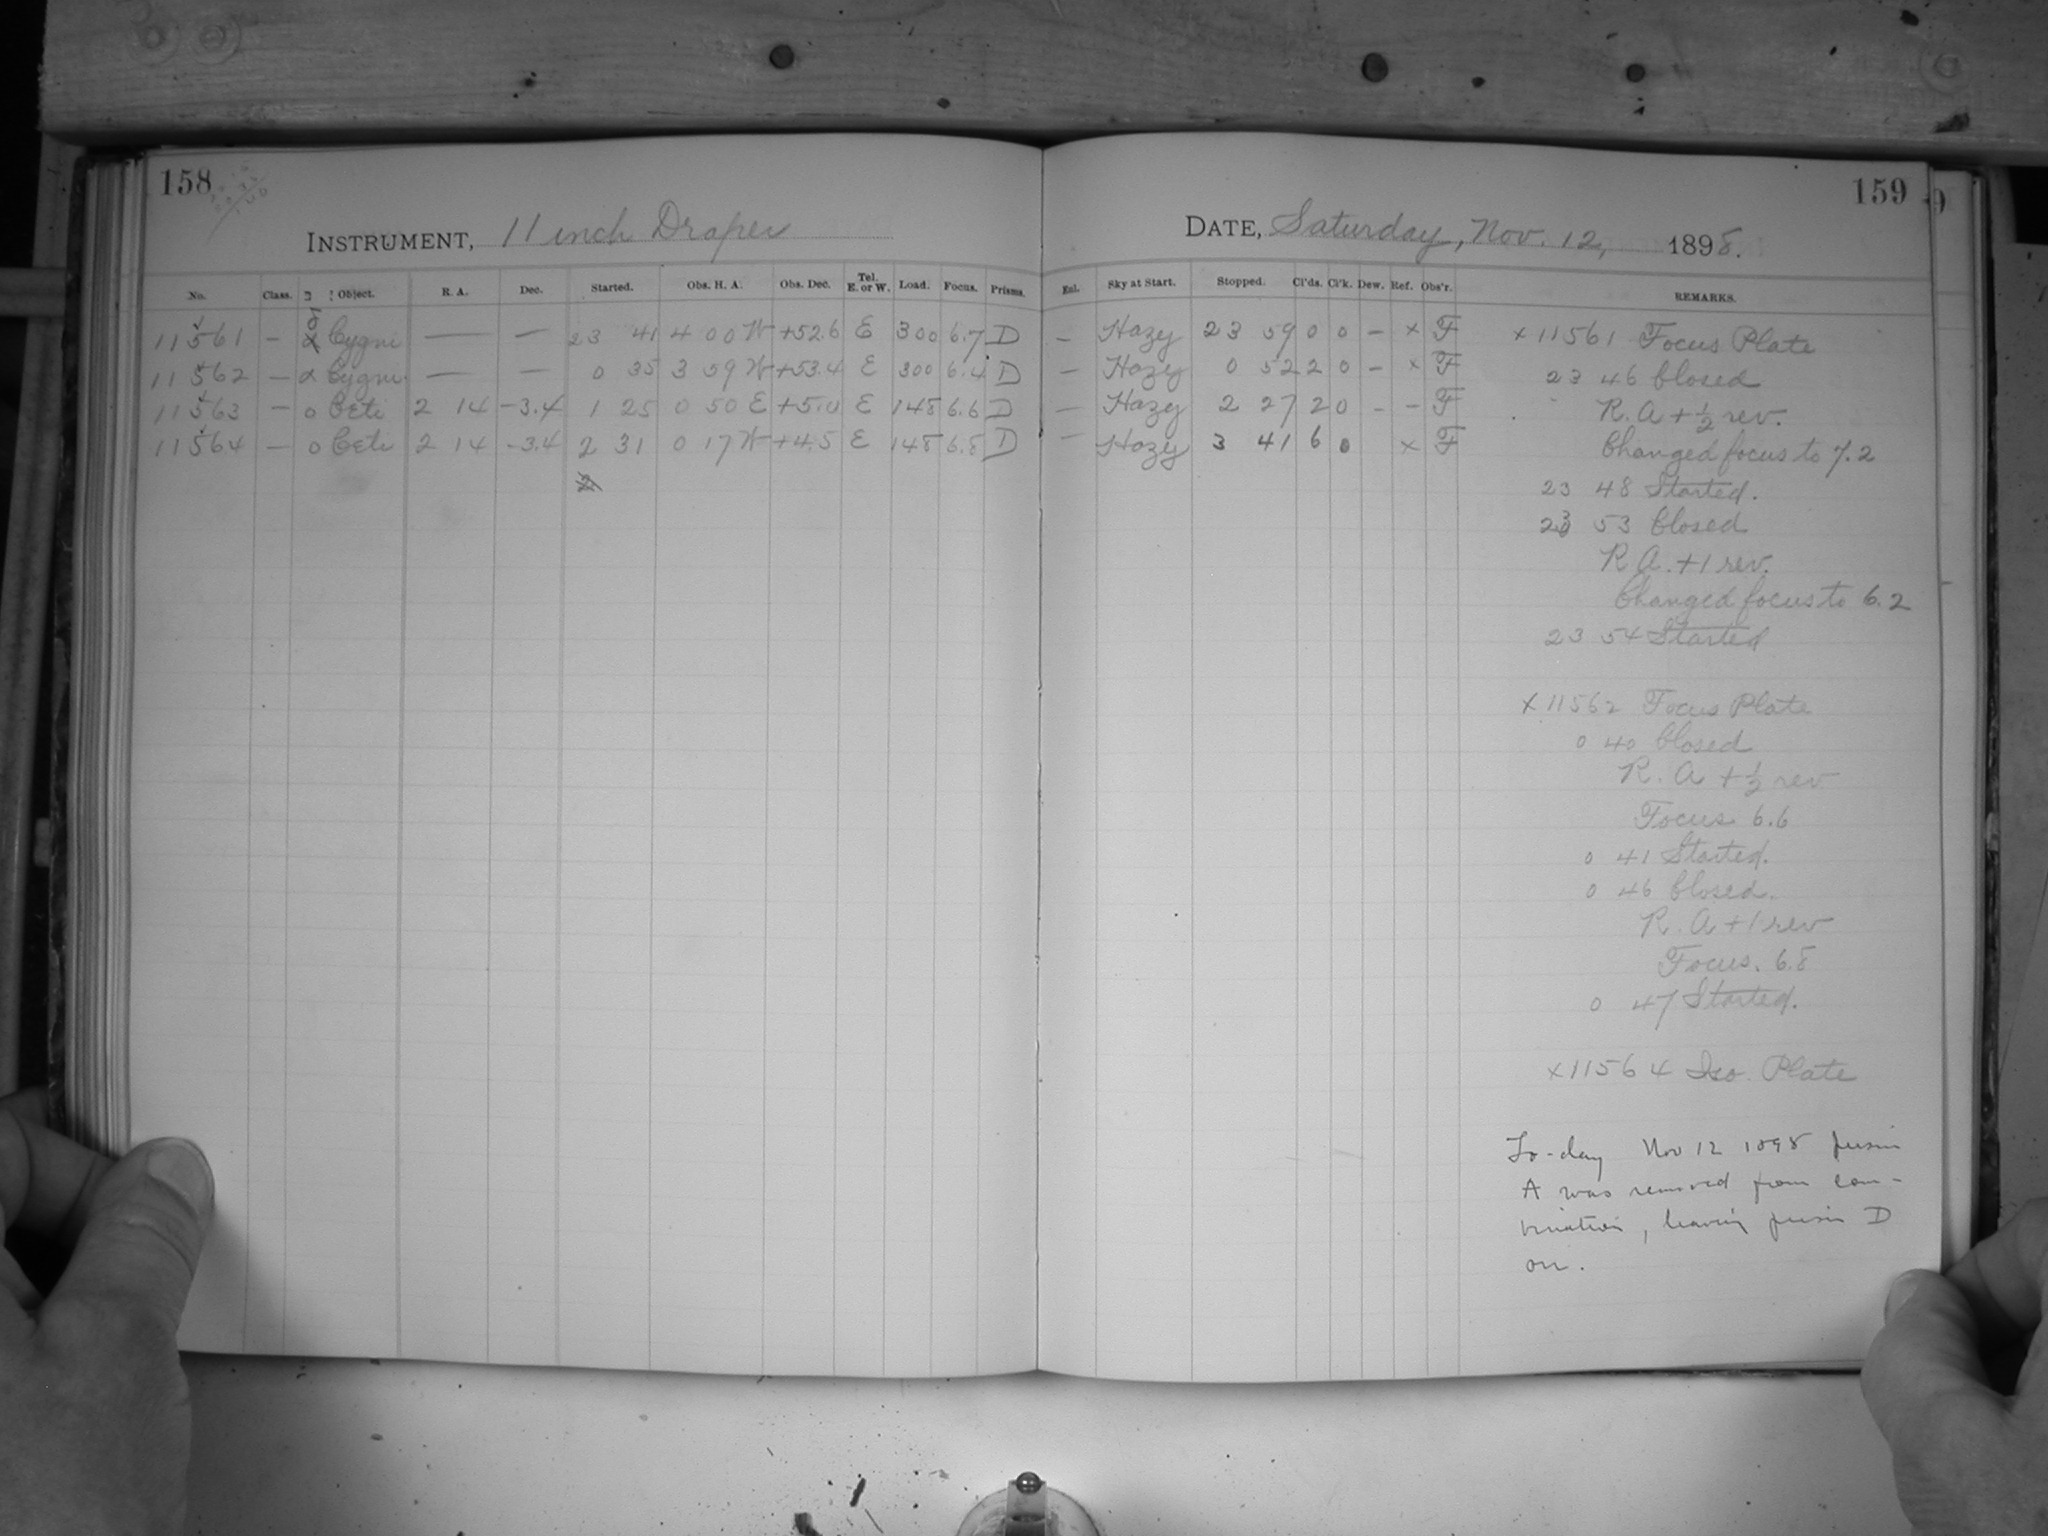 158
INSTRUMENT, 11 inch Draper
No. Class. Object. R. A. Dec. Started. Obs. H. A. Obs. Dec. Tel. E. or W. Load. Focus. Prisms.
11561 — α Cygni — — 23 41 4 00 W +52.6 E 300 6.7 D
11562 — α Cygni — — 0 35 3 59 W +53.4 E 300 6.4 D
11563 — o Ceti 2 14 -3.4 1 25 0 50 E +5.0 E 148 6.6 D
11564 — o Ceti 2 14 -3.4 2 31 0 17 W +4.5 E 148 6.8 D
159
DATE, Saturday, Nov. 12, 1898.
Enl. Sky at Start. Stopped. Cl'ds. Cl'k. Dew. Ref. Obs'r. REMARKS.
— Hazy 23 59 0 0 — x F
— Hazy 0 52 2 0 — x F
— Hazy 2 27 2 0 - - F
— Hazy 3 41 6 0 x F
x 11561 Focus Plate
23 46 Closed
R.A + 1/2 rev.
Changed focus to 7.2
23 48 Started.
23 53 Closed
R A. +1 rev.
Changed focus to 6.2
23 54 Started
x 11562 Focus Plate
0 40 Closed
R. A + 1/2 rev
Focus 6.6
0 41 Started.
0 46 Closed.
R. A +1 rev
Focus. 6.8
0 47 Started.
x11564 Iso. Plate
To-day Nov 12 1898 prism
A was removed from com-
bination, leaving prism D
on.